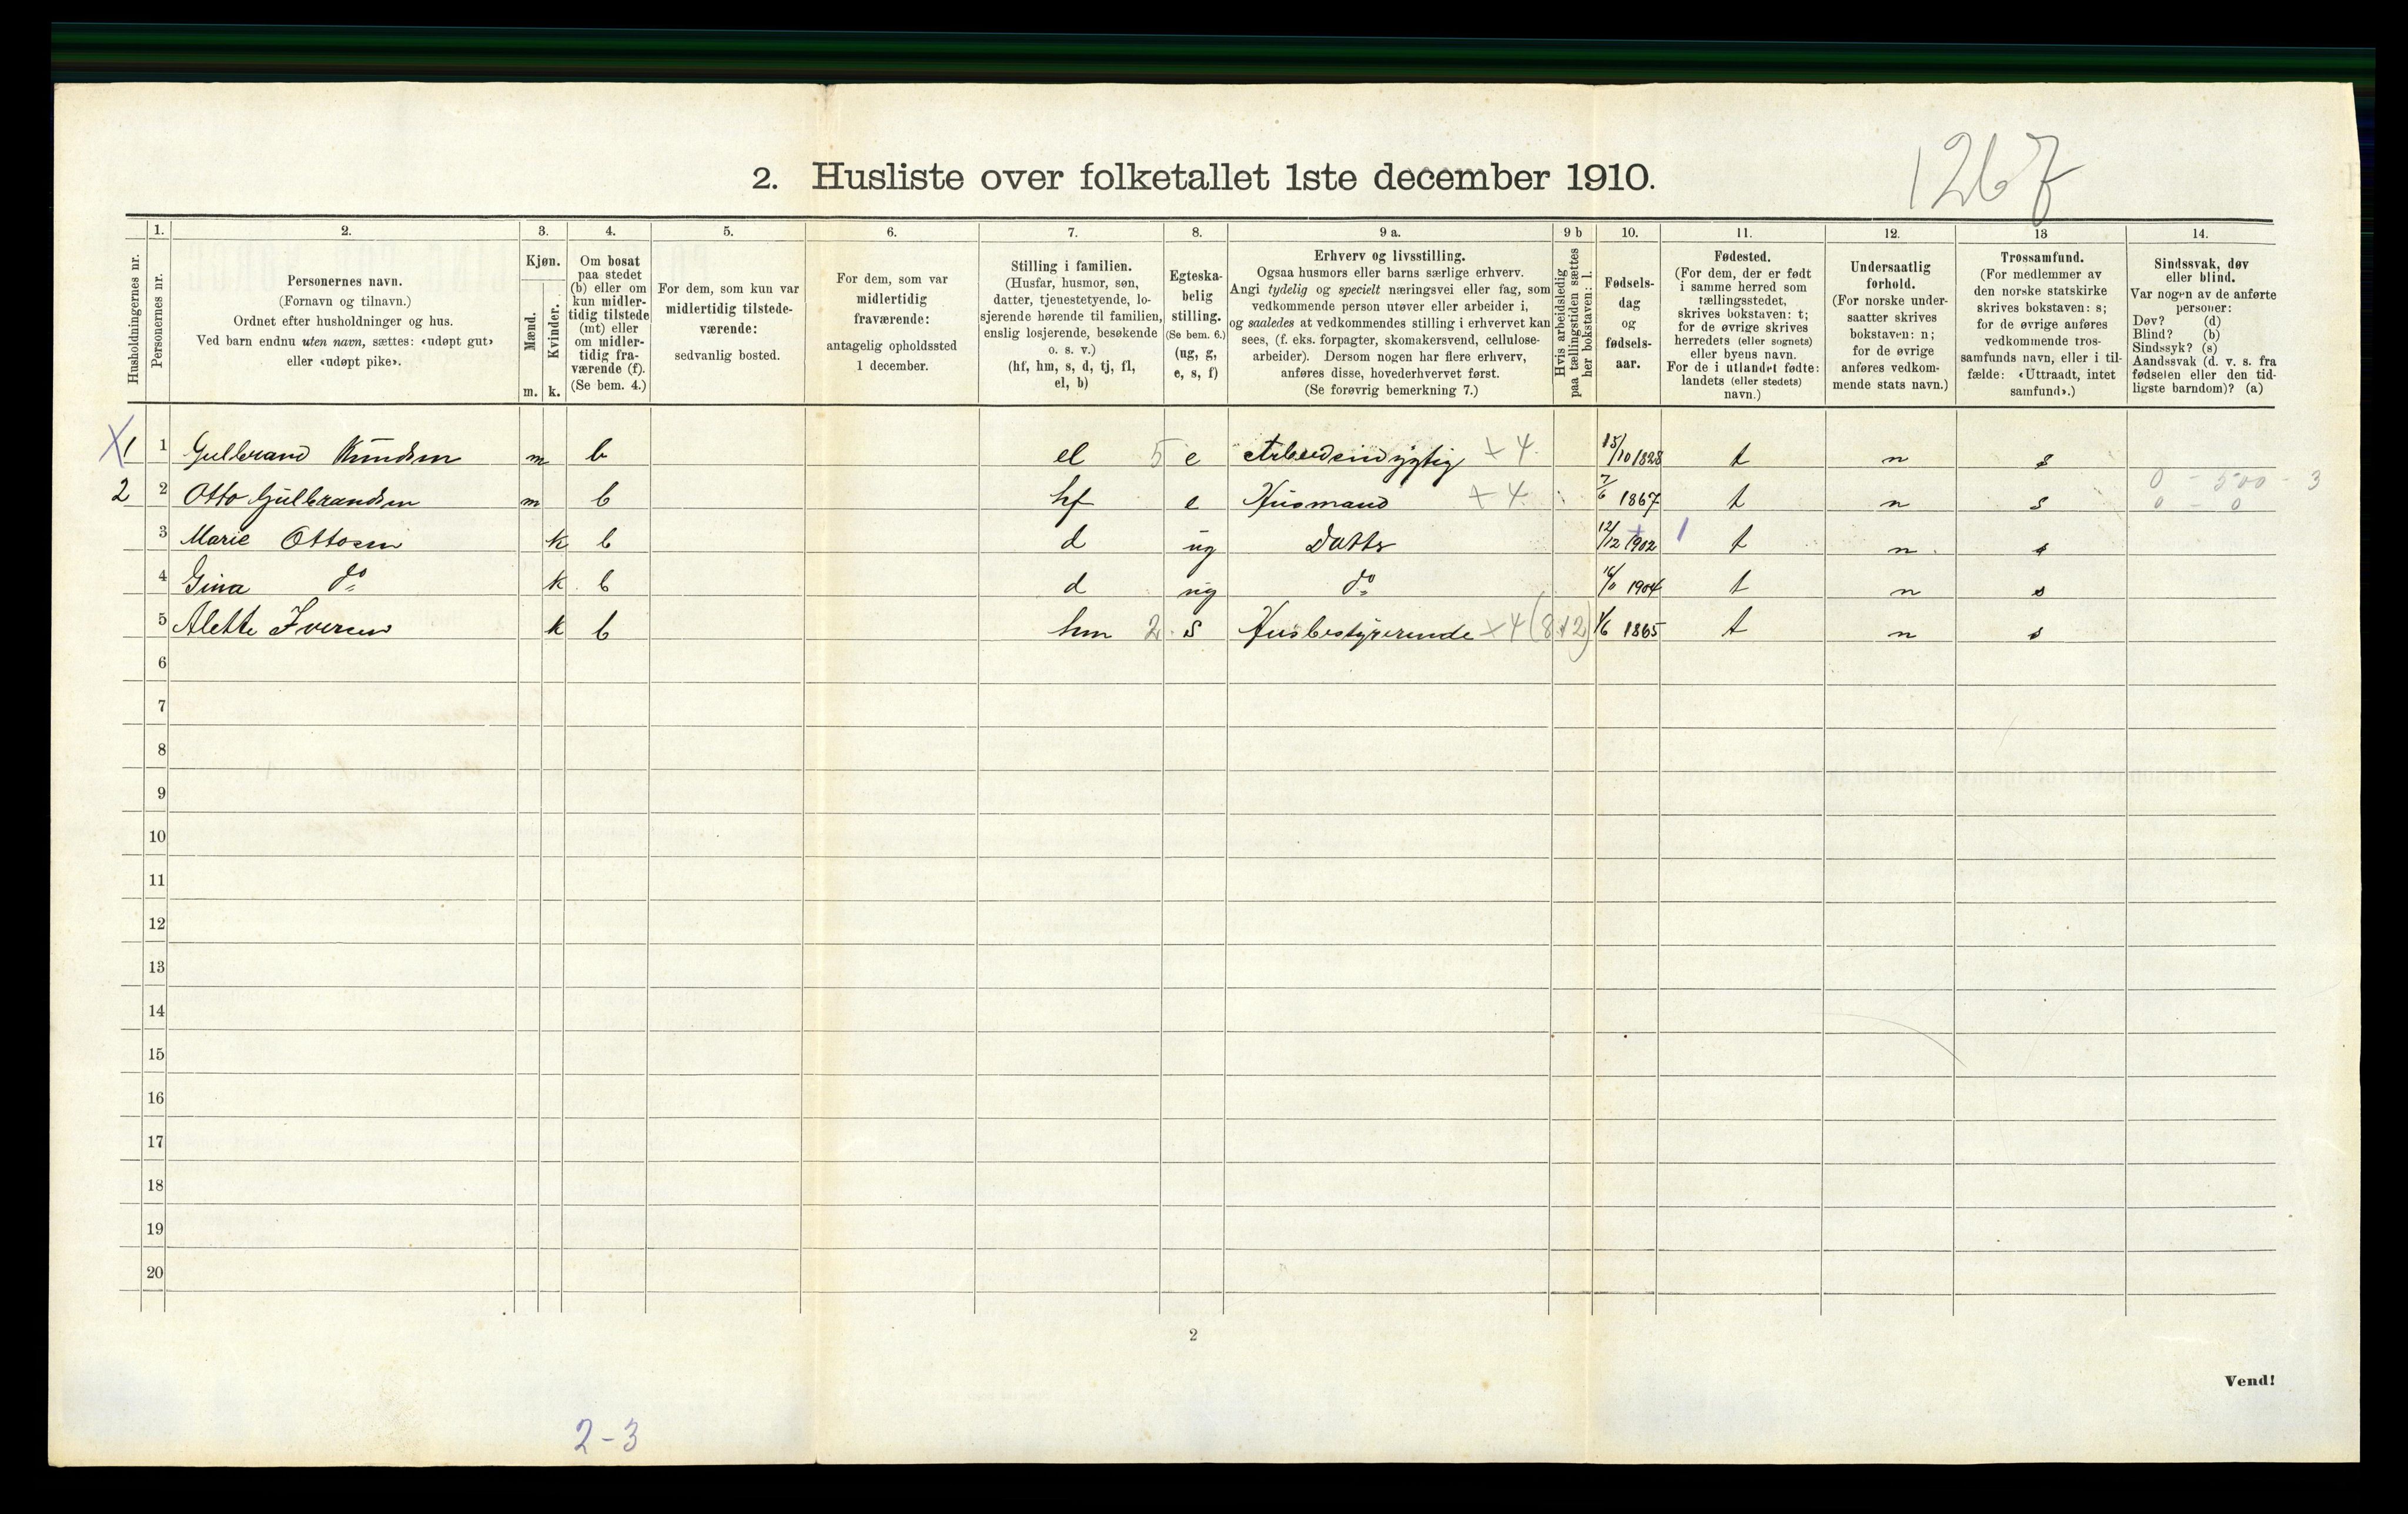 1267
2. Husliste over folketallet 1ste december 1910.
Husholdningernes nr.
1.
Personernes nr.
2.
Personernes navn.
(Fornavn og tilnavn.)
Ordnet efter husholdninger og hus.
Ved barn endnu uten navn, sættes: «udøpt gut»
eller «udøpt pike».
3.
Kjøn.
Mænd.
Kvinder.
m. k.
4.
Om bosat
paa stedet
(b) eller om
kun midler-
tidig tilstede
(mt) eller
om midler-
tidig fra-
værende (f).
(Se bem. 4.)
5.
For dem, som kun var
midlertidig tilstede-
værende:
sedvanlig bosted.
6.
For dem, som var
midlertidig
fraværende:
antagelig opholdssted
1 december.
7.
Stilling i familien.
(Husfar, husmor, søn,
datter, tjenestetyende, lo-
sjerende hørende til familien,
enslig losjerende, besøkende
o. s. v.)
(hf, hm, s, d, tj, fl,
el, b)
8.
Egteska-
belig
stilling.
(Se bem. 6.)
(ug, g,
e, s, f)
9 a.
Erhverv og livsstilling.
Ogsaa husmors eller barns særlige erhverv.
Angi tydelig og specielt næringsvei eller fag, som
vedkommende person utøver eller arbeider i,
og saaledes at vedkommendes stilling i erhvervet kan
sees, (f. eks. forpagter, skomakersvend, cellulose-
arbeider). Dersom nogen har flere erhverv,
anføres disse, hovederhvervet først.
(Se forøvrig bemerkning 7.)
9 b
Hvis arbeidsledig
paa tællingstiden sættes
her bokstaven: l.
10.
Fødsels-
dag
og
fødsels-
aar.
11.
Fødested.
(For dem, der er født
i samme herred som
tællingsstedet,
skrives bokstaven: t;
for de øvrige skrives
herredets (eller sognets)
eller byens navn.
For de i utlandet fødte:
landets (eller stedets)
navn.)
12.
Undersaatlig
forhold.
(For norske under-
saatter skrives
bokstaven: n;
for de øvrige
anføres vedkom-
mende stats navn.)
13
Trossamfund.
(For medlemmer av
den norske statskirke
skrives bokstaven: s;
for de øvrige anføres
vedkommende tros-
samfunds navn, eller i til-
fælde: «Uttraadt, intet
samfund».)
14.
Sindssvak, døv
eller blind.
Var nogen av de anførte
personer:
Døv? (d)
Blind? (b)
Sindssyk? (s)
Aandssvak (d. v. s. fra
fødselen eller den tid-
ligste barndom)? (a)
X 1 1 Gulbrand Knudsen m b el 5 e Arbeidsindygtig +4 15/10 1828 t n s
2 2 Otto Gulbrandsen m b hf e Husmand +4 7/6 1867 t n s 0 - 500 - 3
0 - 0
3 Marie Ottosen k b d ug Datter 12/12 1902 1 t n s
4 Gina do k b d ug do 1904 t n s
5 Alette Iversen k b hm 2 s Husbestyrerinde +4 (812) 1/6 1865 t n s
6
7
8
9
10
11
12
13
14
15
16
17
18
19
20
2
Vend!
2-3